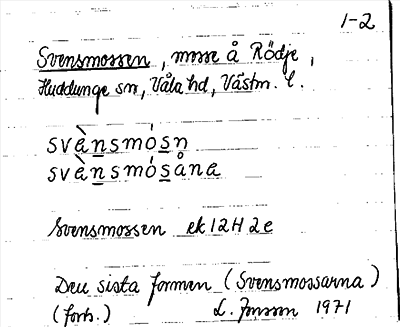 1-2
Svensmossen, mosse å Rödje,
Huddunge sn, Våla hd, Västm. l.
svàn̲smós̲n
svàn̲smós̲åna
Svensmossen ek 12H 2e
Den sista formen (Svensmossarna)
(forts.) L. Jonsson 1971